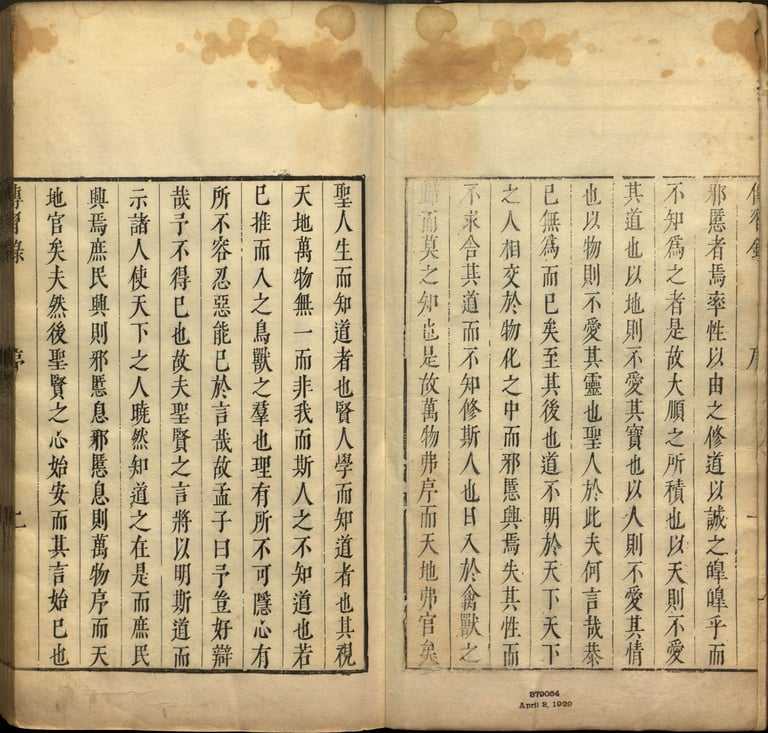 傳習錄 序 一
邪慝者焉率性以由之修道以誠之皥皥乎而
不知為之者是故大順之所積也以天則不愛
其道也以地則不愛其寶也以人則不愛其情
也以物則不愛其靈也聖人於此夫何言哉恭
已無為而已矣至其後也道不明於天下天下
之人相交於物化之中而邪慝興焉失其性而
不求舍其道而不知修斯人也日入於禽獸之
歸而莫之知也是故萬物弗序而天地弗官矣
聖人生而知道者也賢人學而知道者也其視
天地萬物無一而非我而斯人之不知道也若
已推而入之鳥獸之羣也理有所不可隱心有
所不容忍惡能已於言哉故孟子曰予豈好辯
哉予不得已也故夫聖賢之言將以明斯道而
示諸人使天下之人曉然知道之在是而庶民
興焉庶民興則邪慝息邪慝息則萬物序而天
地官矣夫然後聖賢之心始安而其言始已也
傳習錄 序 二
379064
April 3, 1929